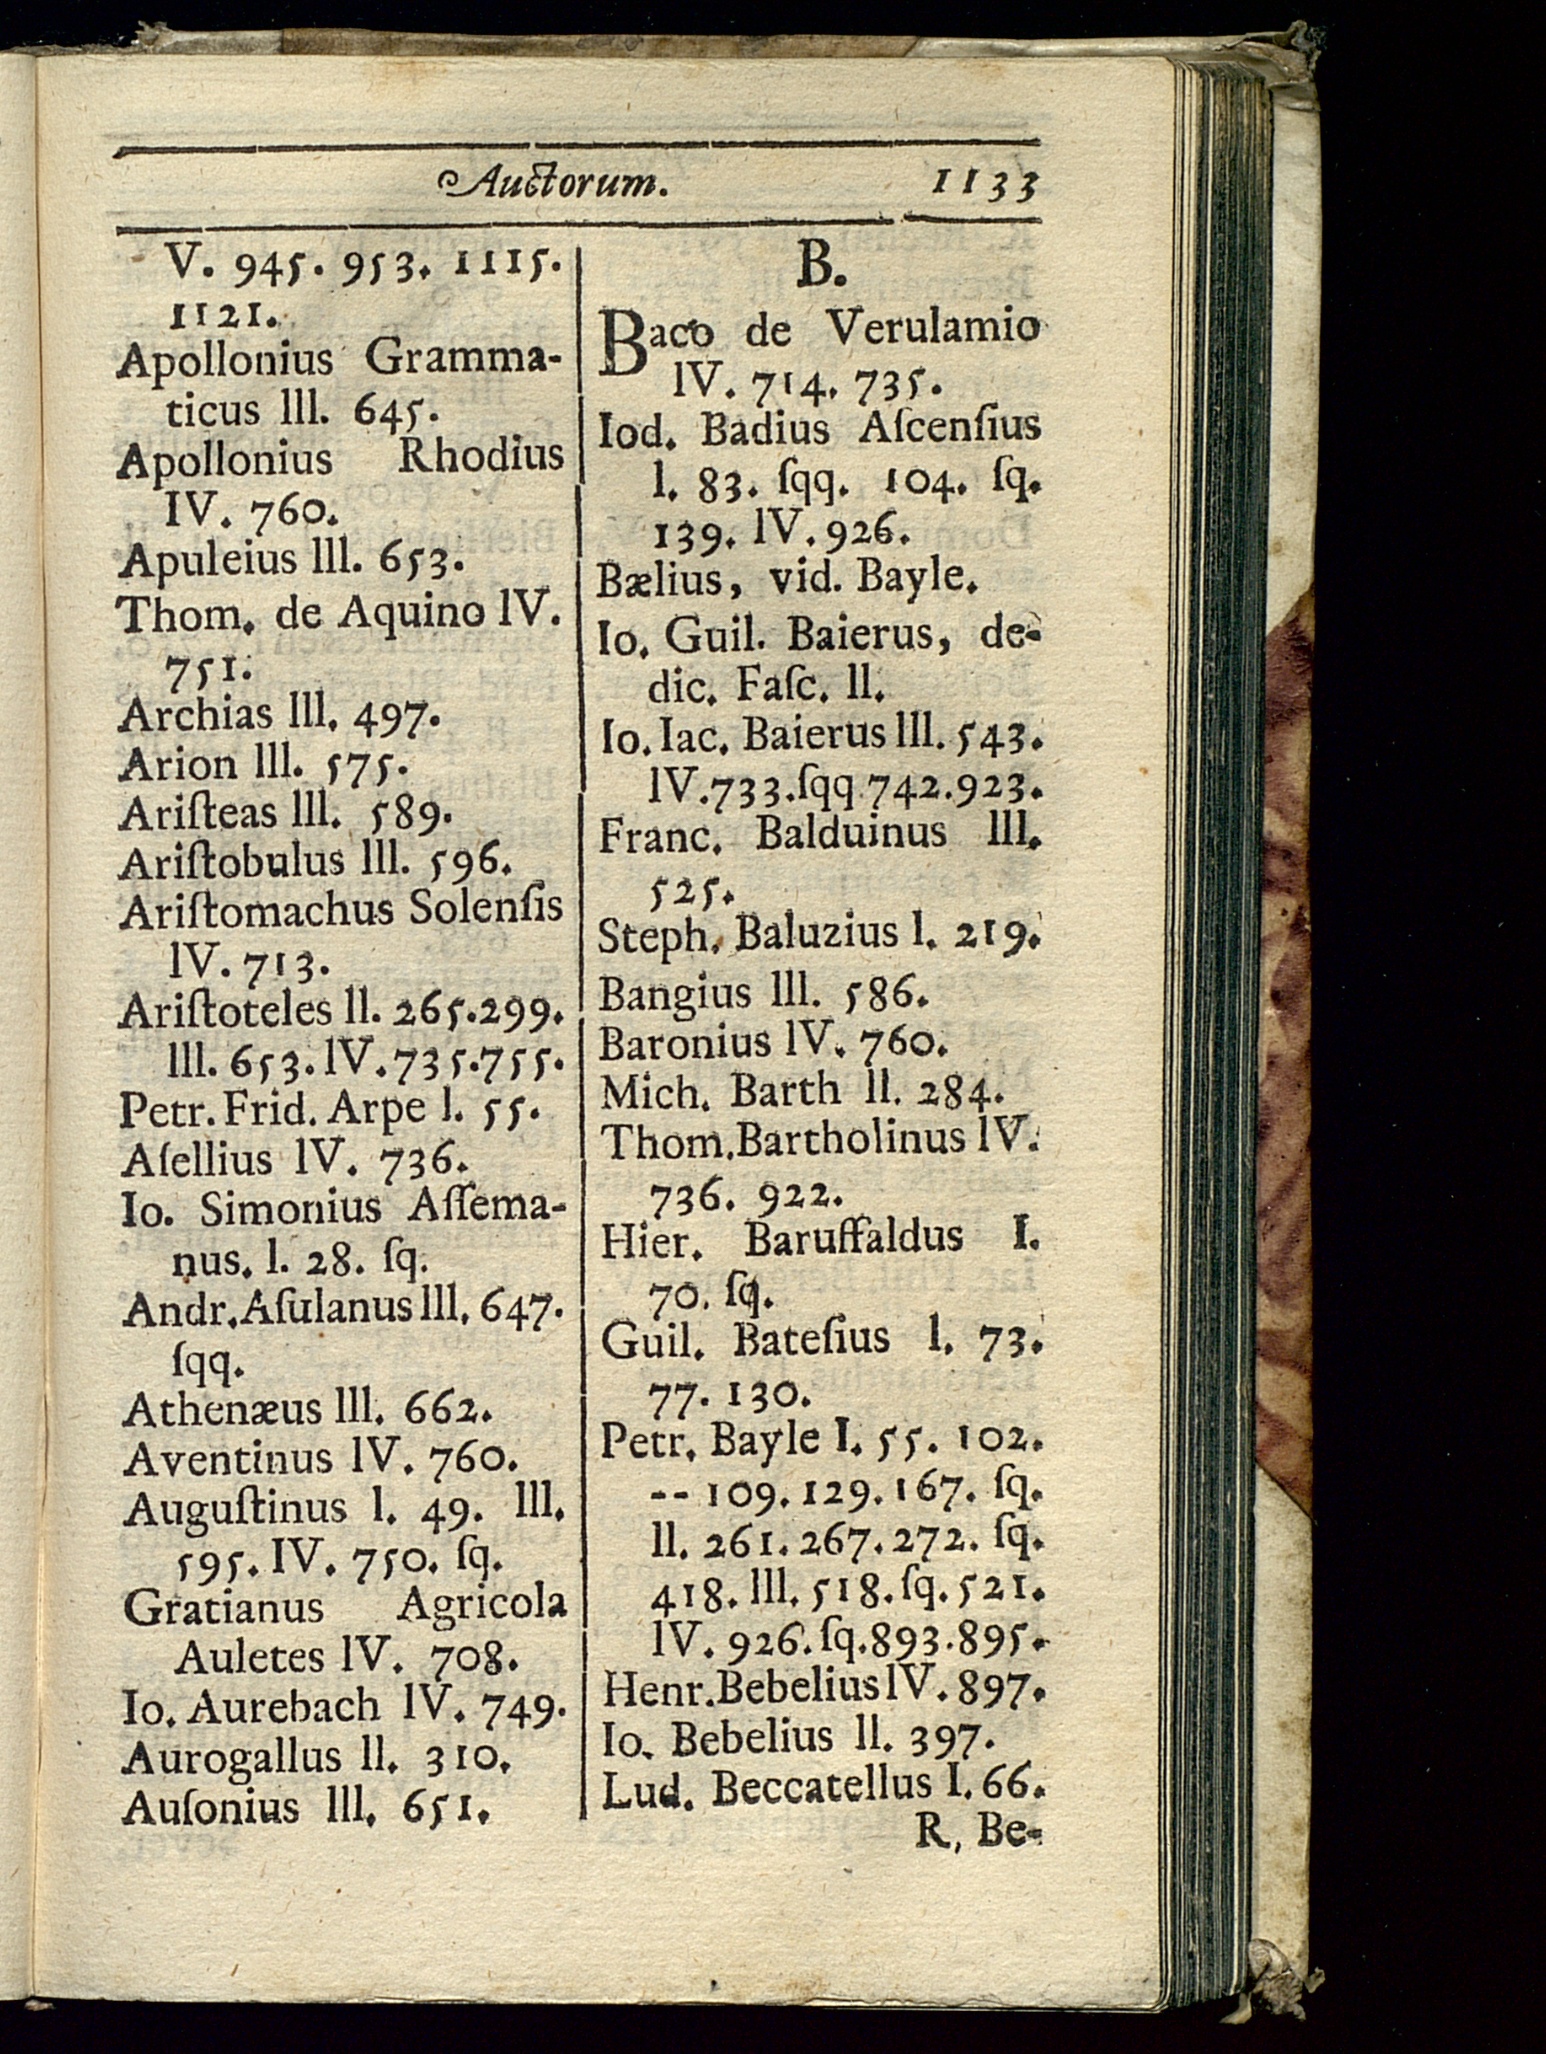 Auctorum. 1133
V. 945. 953. 1115.
1121.
Apollonius Gramma-
ticus lll. 645.
Apollonius Rhodius
IV. 760.
Apuleius lll. 653.
Thom. de Aquino lV.
751.
Archias lll. 497.
Arion lll. 575.
Ariſteas lll. 589.
Ariſtobulus lll. 596.
Ariſtomachus Solenſis
lV. 713.
Ariſtoteles ll. 265.299.
lll. 653.lV.735.755.
Petr. Frid. Arpe l. 55.
Aſellius lV. 736.
Io. Simonius Aſſema-
nus. l. 28. ſq.
Andr.Aſulanus lll. 647.
ſqq.
Athenæus lll. 662.
Aventinus lV. 760.
Auguſtinus l. 49. lll.
595. IV. 750. ſq.
Gratianus Agricola
Auletes lV. 708.
Io. Aurebach lV. 749.
Aurogallus ll. 310.
Auſonius lll. 651.
B.
Baco de Verulamio
lV. 714. 735.
Iod. Badius Aſcenſius
l. 83. ſqq. 104. ſq.
139. lV. 926.
Bælius, vid. Bayle.
Io. Guil. Baierus, de-
dic. Faſc. ll.
Io. Iac. Baierus lll. 543.
lV.733.ſqq.742.923.
Franc. Balduinus lll.
525.
Steph. Baluzius l. 219.
Bangius lll. 586.
Baronius lV. 760.
Mich. Barth ll. 284.
Thom.Bartholinus lV.
736. 922.
Hier. Baruffaldus I.
70. ſq.
Guil. Bateſius l. 73.
77. 130.
Petr. Bayle I. 55. 102.
-- 109. 129. 167. ſq.
ll. 261. 267. 272. ſq.
418. lll. 518. ſq. 521.
lV. 926. ſq.893.895.
Henr.Bebelius lV. 897.
Io. Bebelius ll. 397.
Lud. Beccatellus I. 66.
R. Be-